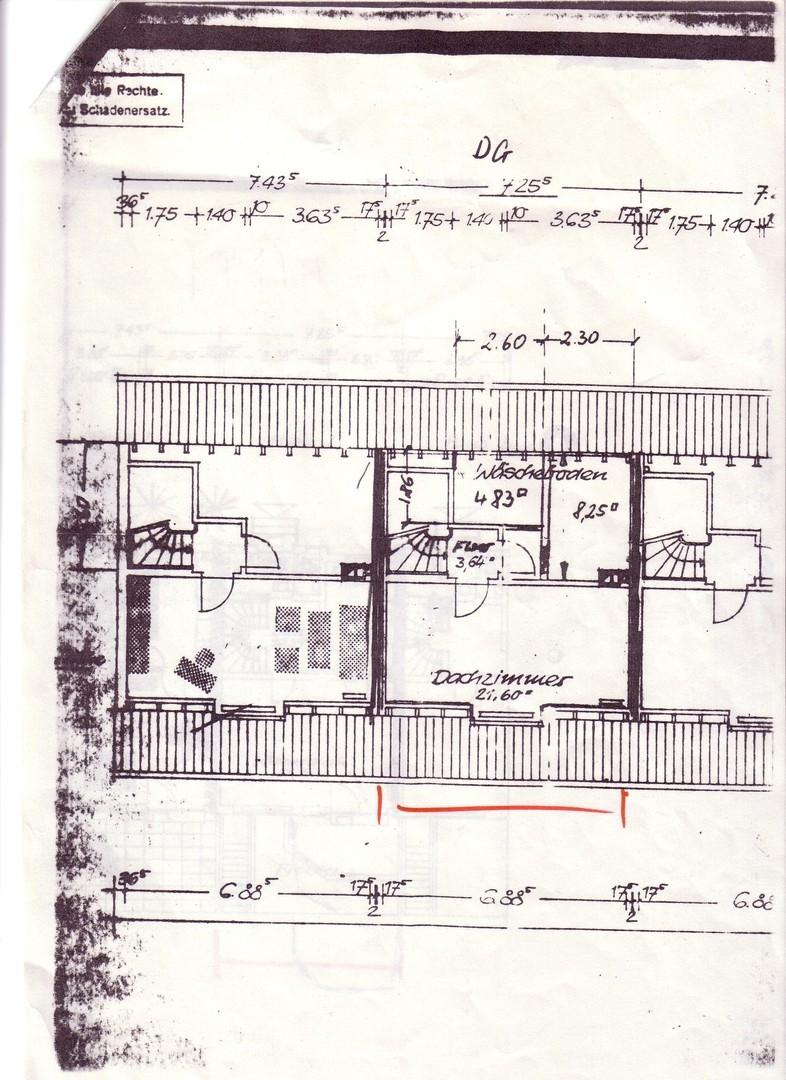 Rechte.
Schadenersatz.
DG
7.43⁵ 7.25⁵ 7.
36⁵ 1.75 1.40 10 3.63⁵ 17⁵ 17⁵ 1.75 1.40 10 3.63⁵ 17⁵ 17⁵ 1.75 1.40
2 2
2.60 2.30
Wäscheboden
4 83□
1,86
8,25□
Flur
3,64□
Dachzimmer
21,60□
36⁵ 6.88⁵ 17⁵ 17⁵ 6.88⁵ 17⁵ 17⁵ 6.88
2 2